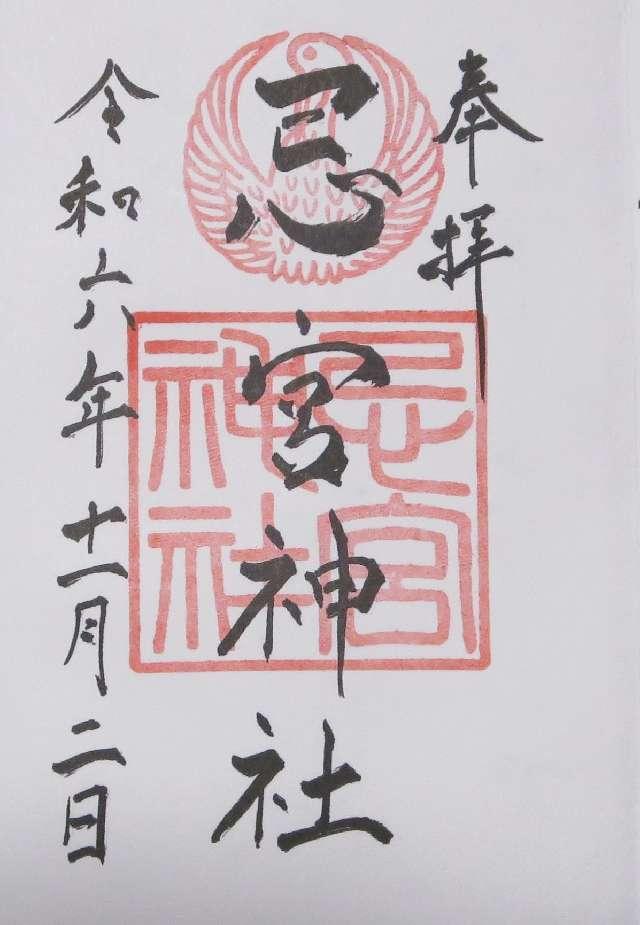 奉拝
忌宮神社
令和六年十一月二日
忌宮
神社